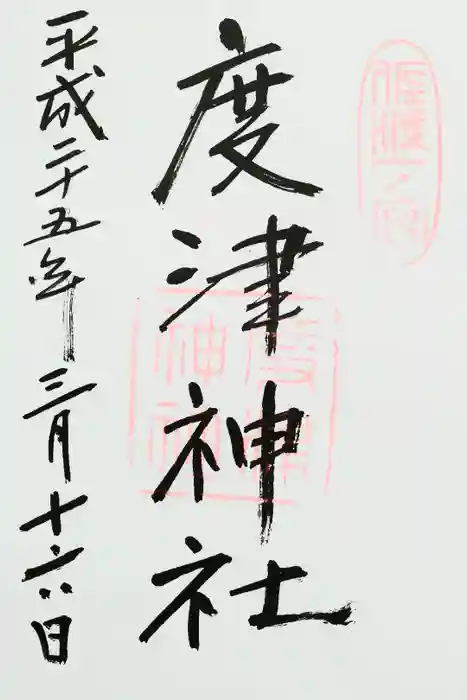 佐渡一ノ宮
度津神社
度津
神社
平成二十五年三月十六日